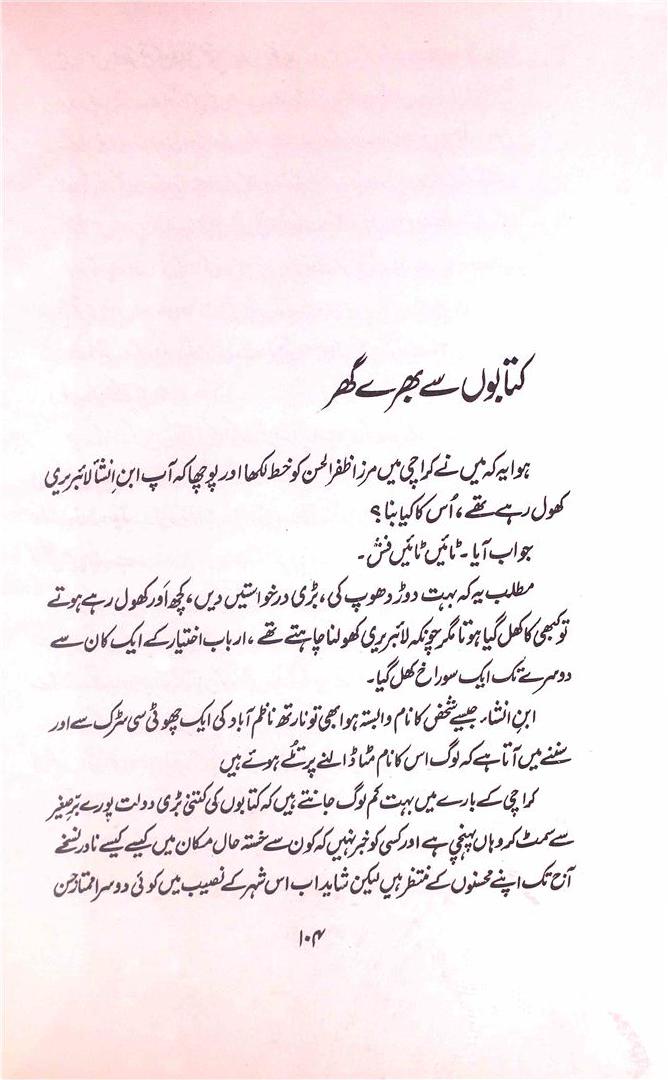 کتابوں سے بھرے گھر
ہوا یہ کہ میں نے کراچی میں مرزا ظفر الحسن کو خط لکھا اور پوچھا کہ آپ ابنِ انشأ لائبریری
کھول رہے تھے، اُس کا کیا بنا؟
جواب آیا۔ ٹائیں ٹائیں فش۔
مطلب یہ کہ بہت دوڑ دھوپ کی، بڑی درخواستیں دیں، کچھ اَور کھول رہے ہوتے
تو کبھی کا کھل گیا ہوتا مگر چونکہ لائبریری کھولنا چاہتے تھے، اربابِ اختیار کے ایک کان سے
دوسرے تک ایک سوراخ کھل گیا۔
ابنِ انشاء جیسے شخص کا نام وابستہ ہوا بھی تو نارتھ ناظم آباد کی ایک چھوٹی سی سڑک سے اور
سننے میں آتا ہے کہ لوگ اس کا نام مٹا ڈالنے پر تلُے ہوئے ہیں
کراچی کے بارے میں بہت کم لوگ جانتے ہیں کہ کتابوں کی کتنی بڑی دولت پورے برِّصغیر
سے سمٹ کر وہاں پہنچی ہے اور کسی کو خبر نہیں کہ کون سے خستہ حال مکان میں کیسے کیسے نادر نسخے
آج تک اپنے محسنوں کے منتظر ہیں لیکن شاید اب اس شہر کے نصیب میں کوئی دوسرا ممتاز حسن
۱۰۴